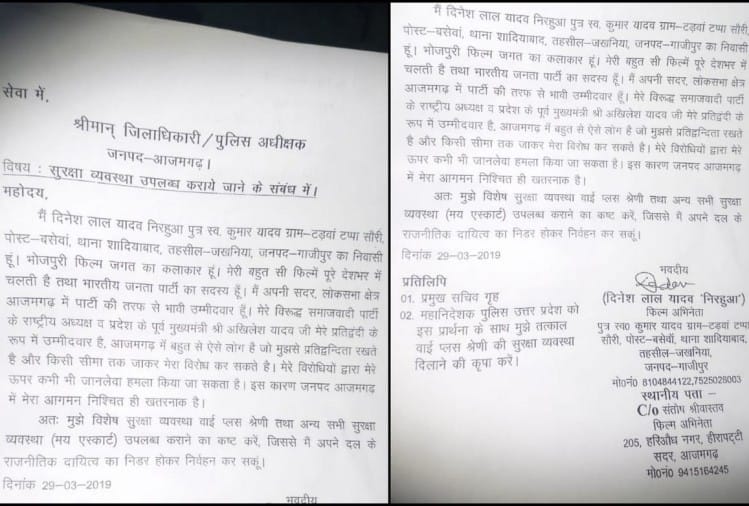 सेवा में,
श्रीमान् जिलाधिकारी/पुलिस अधीक्षक
जनपद–आजमगढ़।
विषय : सुरक्षा व्यवस्था उपलब्ध कराये जाने के संबंध में।
महोदय,
मैं दिनेश लाल यादव निरहुआ पुत्र स्व. कुमार यादव ग्राम–टड़वां टप्पा सौरी,
पोस्ट–बसेवां, थाना शादियाबाद, तहसील–जखनिया, जनपद–गाजीपुर का निवासी
हूं। भोजपुरी फिल्म जगत का कलाकार हूं। मेरी बहुत सी फिल्में पूरे देशभर में
चलती है तथा भारतीय जनता पार्टी का सदस्य हूँ। मैं अपनी सदर, लोकसभा क्षेत्र
आजमगढ़ में पार्टी की तरफ से भावी उम्मीदवार हूं। मेरे विरूद्ध समाजवादी पार्टी
के राष्ट्रीय अध्यक्ष व प्रदेश के पूर्व मुख्यमंत्री श्री अखिलेश यादव जी मेरे प्रतिद्वंदी के
रूप में उम्मीदवार है, आजमगढ़ में बहुत से ऐसे लोग है जो मुझसे प्रतिद्वन्दिता रखते
है और किसी सीमा तक जाकर मेरा विरोध कर सकते है। मेरे विरोधियों द्वारा मेरे
ऊपर कभी भी जानलेवा हमला किया जा सकता है। इस कारण जनपद आजमगढ़
में मेरा आगमन निश्चित ही खतरनाक है।
अतः मुझे विशेष सुरक्षा व्यवस्था वाई प्लस श्रेणी तथा अन्य सभी सुरक्षा
व्यवस्था (मय एस्कार्ट) उपलब्ध कराने का कष्ट करें, जिससे मै अपने दल के
राजनीतिक दायित्व का निडर होकर निर्वहन कर सकूं।
दिनांक 29–03–2019
भवदीय
मैं दिनेश लाल यादव निरहुआ पुत्र स्व. कुमार यादव ग्राम–टड़वां टप्पा सौरी,
पोस्ट–बसेवां, थाना शादियाबाद, तहसील–जखनिया, जनपद–गाजीपुर का निवासी
हूं। भोजपुरी फिल्म जगत का कलाकार हूं। मेरी बहुत सी फिल्में पूरे देशभर में
चलती है तथा भारतीय जनता पार्टी का सदस्य हूँ। मैं अपनी सदर, लोकसभा क्षेत्र
आजमगढ़ में पार्टी की तरफ से भावी उम्मीदवार हूं। मेरे विरूद्ध समाजवादी पार्टी
के राष्ट्रीय अध्यक्ष व प्रदेश के पूर्व मुख्यमंत्री श्री अखिलेश यादव जी मेरे प्रतिद्वंदी के
रूप में उम्मीदवार है, आजमगढ़ में बहुत से ऐसे लोग है जो मुझसे प्रतिद्वन्दिता रखते
है और किसी सीमा तक जाकर मेरा विरोध कर सकते है। मेरे विरोधियों द्वारा मेरे
ऊपर कभी भी जानलेवा हमला किया जा सकता है। इस कारण जनपद आजमगढ़
में मेरा आगमन निश्चित ही खतरनाक है।
अतः मुझे विशेष सुरक्षा व्यवस्था वाई प्लस श्रेणी तथा अन्य सभी सुरक्षा
व्यवस्था (मय एस्कार्ट) उपलब्ध कराने का कष्ट करें, जिससे मै अपने दल के
राजनीतिक दायित्व का निडर होकर निर्वहन कर सकूं।
दिनांक 29–03–2019
भवदीय
प्रतिलिपि
01. प्रमुख सचिव गृह
02. महानिदेशक पुलिस उत्तर प्रदेश को
इस प्रार्थना के साथ मुझे तत्काल
वाई प्लस श्रेणी की सुरक्षा व्यवस्था
दिलाने की कृपा करें।
(दिनेश लाल यादव 'निरहुआ')
फिल्म अभिनेता
पुत्र स्व0 कुमार यादव ग्राम–टड़वां टप्पा
सौरी, पोस्ट–बसेवां, थाना शादियाबाद,
तहसील–जखनिया,
जनपद–गाजीपुर
मो0नं0 8104844122,7525028003
स्थानीय पता –
C/o संतोष श्रीवास्तव
फिल्म अभिनेता
205, हरिऔध नगर, हीरापट्टी
सदर, आजमगढ़
मो0नं0 9415164245